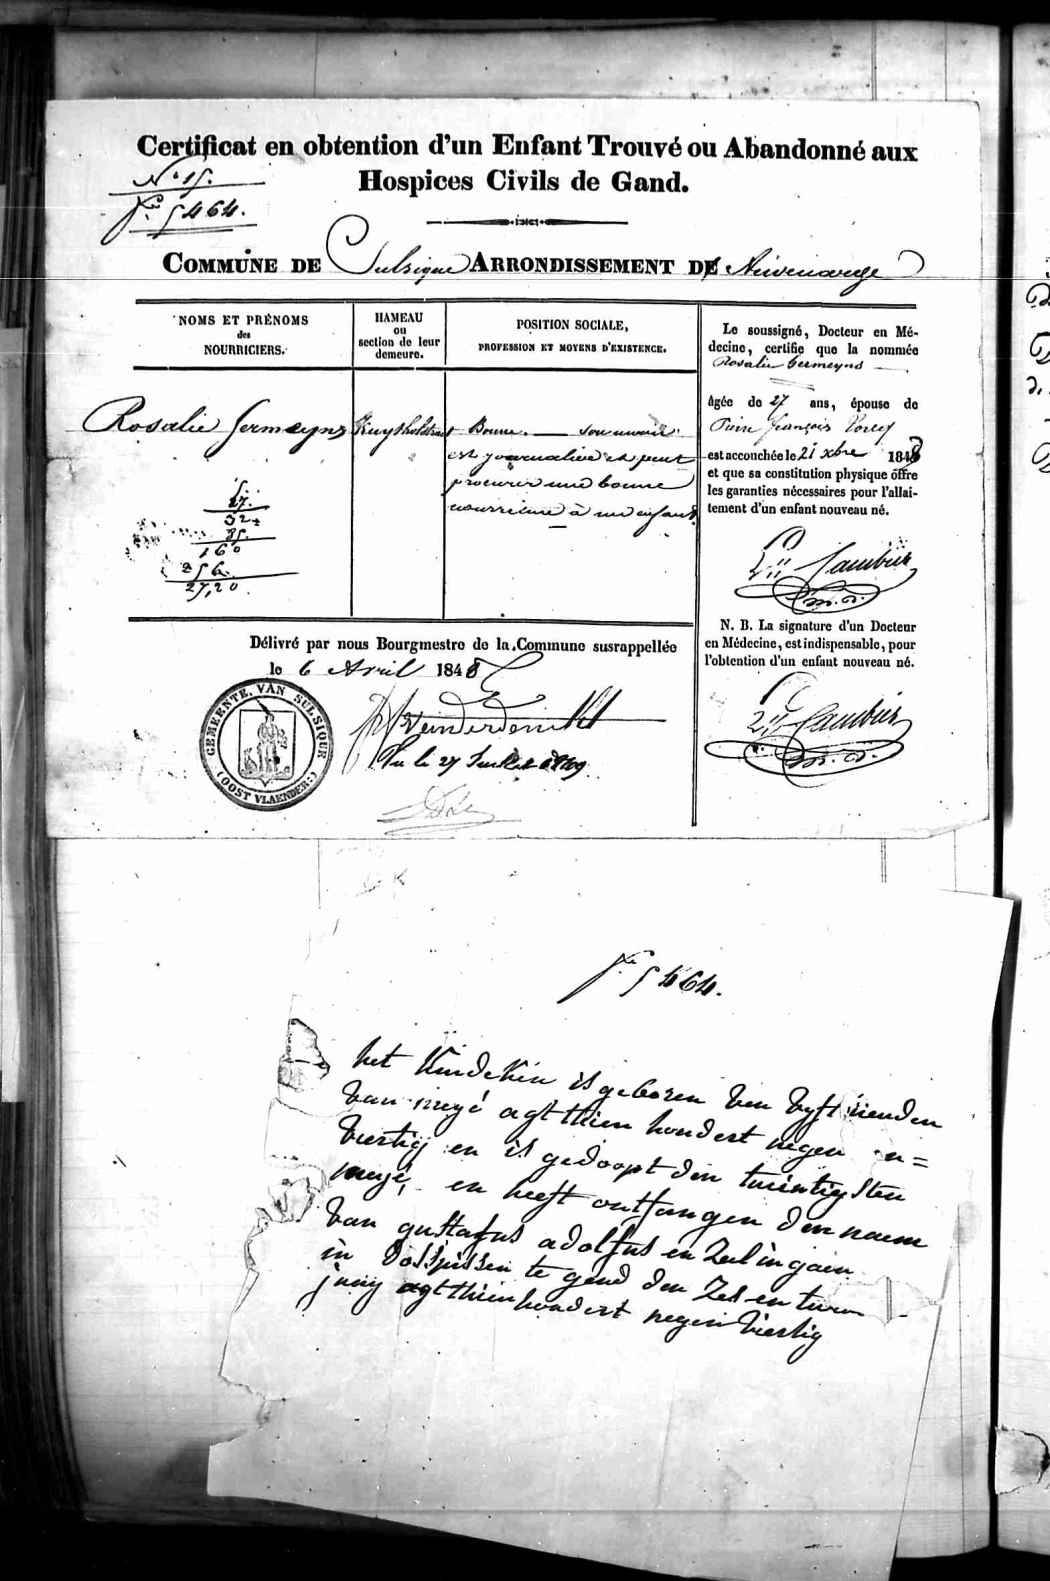 Certificat en obtention d'un Enfant Trouvé ou Abandonné aux
Hospices Civils de Gand.
N.° 15.
5464.
COMMUNE DE Sulsique ARRONDISSEMENT DE
NOMS ET PRÉNOMS
des
NOURRICIERS.
HAMEAU
ou
section de leur
demeure.
POSITION SOCIALE,
PROFESSION ET MOYENS D'EXISTENCE.
Rosalie Germeyns
Bonne. — son
est journalier et peut
procurer une bonne
nourriture à un enfant.
5.
27.
32
85.
160
256.
27,20
Le soussigné, Docteur en Mé-
decine, certifie que la nommée
Rosalie Germeyns
âgée de 27 ans, épouse de
François
est accouchée le 21 xbre 1848
et que sa constitution physique offre
les garanties nécessaires pour l'allai-
tement d'un enfant nouveau né.
Cambier
m. d.
N. B. La signature d'un Docteur
en Médecine, est indispensable, pour
l'obtention d'un enfant nouveau né.
Cambier
m. d.
Délivré par nous Bourgmestre de la Commune susrappellée
le 6 Avril 1848
Vu le 27 1849
GEMEENTE VAN SULSIQUE
(OOST VLAENDER:)
5464.
het Kindekin is geboren den vyfthienden
van meyé agtthien hondert negen en=
viertig en is gedoopt den twintigsten
meyé, en heeft ontfangen den naem
van gustafus adolfus en
in te gend den Zes en twen
juny agtthien hondert negen viertig